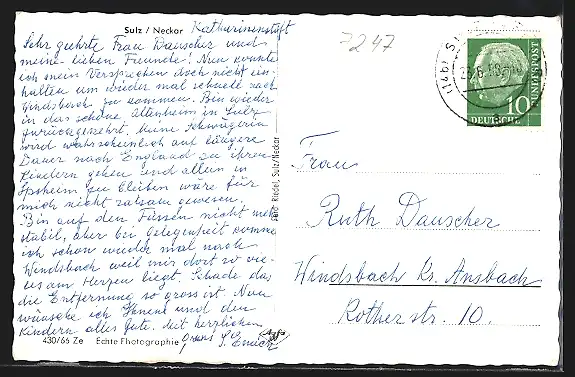 Sulz / Neckar Katharinenstift
Sehr geehrte Frau Dauscher und
meine lieben Freunde! Nun konnte
ich mein Versprechen doch nicht ein-
halten um wieder mal schnell nach
Windsbach zu kommen. Bin wieder
in das schöne Altenheim in Sulz
zurückgekehrt, meine Schwägerin
wird wahrscheinlich auf längere
Dauer nach England zu ihren
Kindern gehen und allein in
Ipsheim zu bleiben wäre für
mich nicht ratsam gewesen.
Bin auf den Füssen nicht mehr
stabil, aber bei Gelegenheit komme
ich schon wieder mal nach
Windsbach weil mir dort so vie-
les am Herzen liegt. Schade das
die Entfernung so gross ist. Nun
wünsche ich Ihnen und den
Kindern alles Gute. Mit herzlichen
Gruss S.
430/66 Ze Echte Photographie
Foto Riedel, Sulz/Neckar
7247
DEUTSCHE BUNDESPOST
10
Frau
Ruth Dauscher
Windsbach Kr. Ansbach
Rother str. 10.